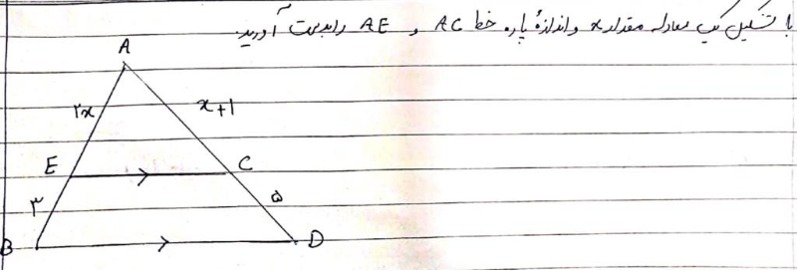 با تشکیل یک معادله مقدار x و اندازهٔ پاره خط AC و AE را بدست آورید.
A
۲x
x+1
E
C
۳
۵
B
D